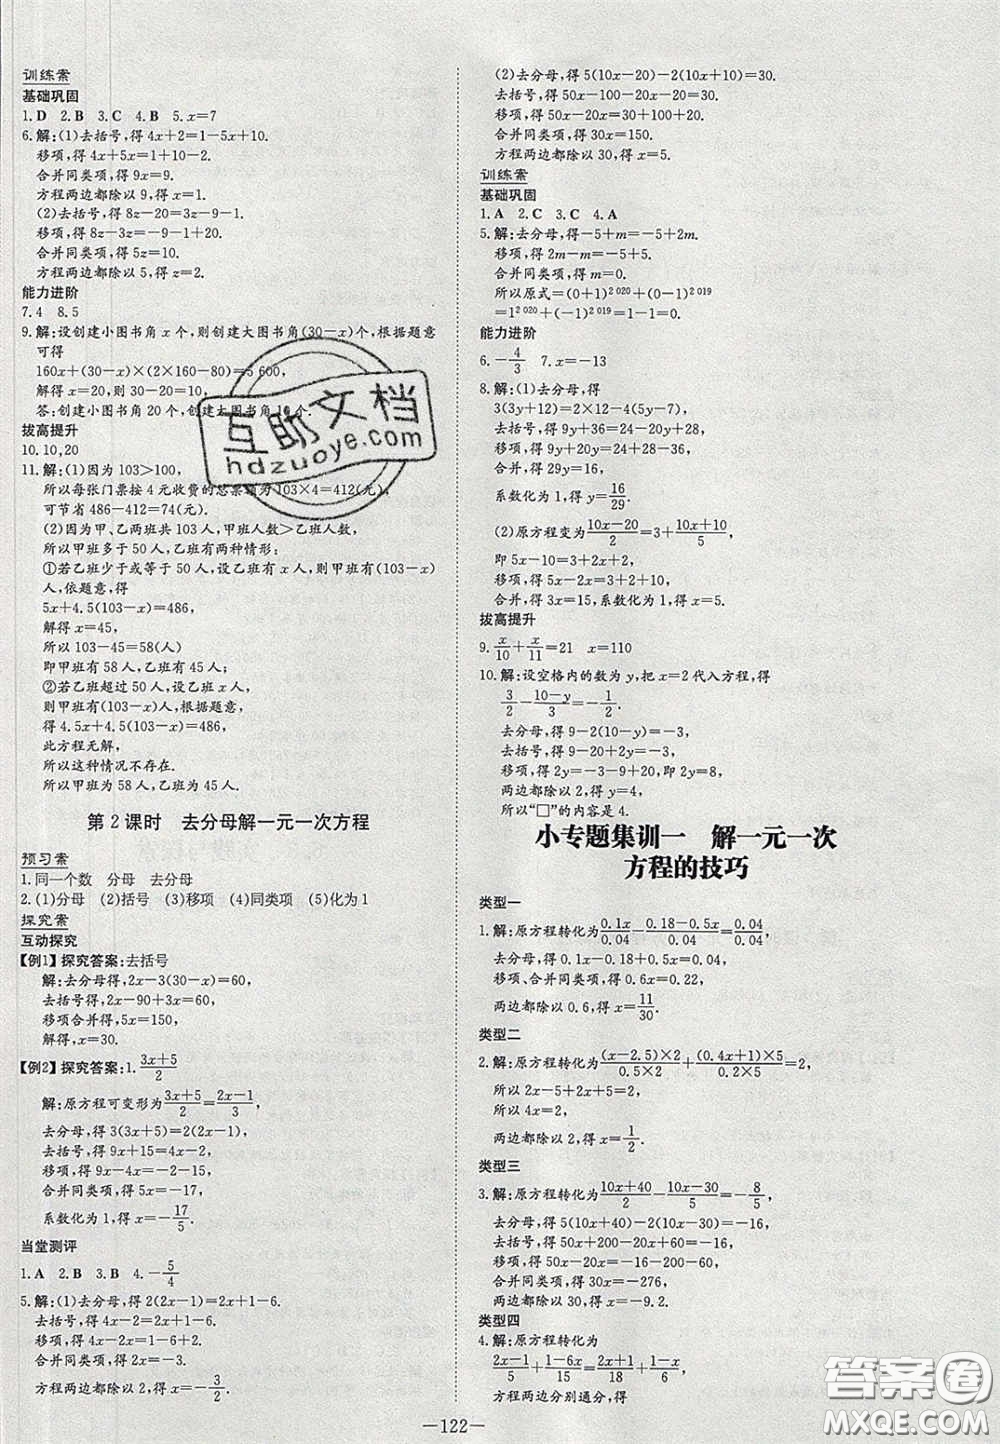 训练案
基础巩固
1. D 2. B 3. C 4. B 5. x=7
6. 解:(1)去括号,得 4x+2=1-5x+10.
移项,得 4x+5x=1+10-2.
合并同类项,得 9x=9.
方程两边都除以 9,得 x=1.
(2)去括号,得 8z-20=3z-9-1.
移项,得 8z-3z=-9-1+20.
合并同类项,得 5z=10.
方程两边都除以 5,得 z=2.
能力进阶
7. 4 8. 5
9. 解:设创建小图书角 x 个,则创建大图书角(30-x)个,根据题意
可得
160x+(30-x)×(2×160-80)=5 600,
解得 x=20,则 30-20=10.
答:创建小图书角 20 个,创建大图书角 10 个.
拔高提升
10. 10,20
11. 解:(1)因为 103>100,
所以每张门票按 4 元收费的总票额为 103×4=412(元),
可节省 486-412=74(元).
(2)因为甲、乙两班共 103 人,甲班人数>乙班人数,
所以甲班多于 50 人,乙班有两种情形:
①若乙班少于或等于 50 人,设乙班有 x 人,则甲班有(103-x)
人,依题意,得
5x+4.5(103-x)=486,
解得 x=45,
所以 103-45=58(人)
即甲班有 58 人,乙班有 45 人;
②若乙班超过 50 人,设乙班 x 人,
则甲班有(103-x)人,根据题意,
得 4.5x+4.5(103-x)=486,
此方程无解,
所以这种情况不存在.
所以甲班为 58 人,乙班为 45 人.
第 2 课时 去分母解一元一次方程
预习案
1. 同一个数 分母 去分母
2. (1)分母 (2)括号 (3)移项 (4)同类项 (5)化为 1
探究案
互动探究
【例1】探究答案:去括号
解:去分母得,2x-3(30-x)=60,
去括号得,2x-90+3x=60,
移项合并得,5x=150,
解得,x=30.
【例2】探究答案:1. (3x+5)/2
解:原方程可变形为(3x+5)/2=(2x-1)/3,
去分母,得 3(3x+5)=2(2x-1).
去括号,得 9x+15=4x-2.
移项,得 9x-4x=-15-2.
合并同类项,得 5x=-17,
系数化为 1,得 x=-17/5.
当堂测评
1. A 2. B 3. B 4. -5/4
5. 解:(1)去分母,得 2(2x-1)=2x+1-6.
去括号,得 4x-2=2x+1-6.
移项,得 4x-2x=1-6+2.
合并同类项,得 2x=-3.
方程两边都除以 2,得 x=-3/2.
(2)去分母,得 5(10x-20)-2(10x+10)=30.
去括号,得 50x-100-20x-20=30.
移项,得 50x-20x=30+100+20.
合并同类项,得 30x=150.
方程两边都除以 30,得 x=5.
训练案
基础巩固
1. A 2. C 3. C 4. A
5. 解:去分母,得-5+m=-5+2m.
移项,得 2m-m=-5+5.
合并同类项,得 m=0.
所以原式=(0+1)^2 020+(0-1)^2 019
=1^2 020+(-1)^2 019=1-1=0.
能力进阶
6. -4/3 7. x=-13
8. 解:(1)去分母,得
3(3y+12)=2×12-4(5y-7),
去括号,得 9y+36=24-20y+28,
移项,得 9y+20y=24+28-36,
合并,得 29y=16,
系数化为 1,得 y=16/29.
(2)原方程变为(10x-20)/2=3+(10x+10)/5,
即 5x-10=3+2x+2,
移项,得 5x-2x=3+2+10,
合并,得 3x=15,系数化为 1,得 x=5.
拔高提升
9. x/10+x/11=21 x=110
10. 解:设空格内的数为 y,把 x=2 代入方程,得
3/2-(10-y)/3=-1/2.
去分母,得 9-2(10-y)=-3;
去括号,得 9-20+2y=-3;
移项,得 2y=-3-9+20,即 2y=8,
两边都除以 2,得 y=4.
所以“□”的内容是 4.
小专题集训一 解一元一次
方程的技巧
类型一
1. 解:原方程转化为0.1x/0.04-(0.18-0.5x)/0.04=0.04/0.04,
去分母,得 0.1x-0.18+0.5x=0.04,
移项、合并同类项,得 0.6x=0.22,
两边都除以 0.6,得 x=11/30.
类型二
2. 解:原方程转化为((x-2.5)×2)/(0.5×2)+((0.4x+1)×5)/(0.2×5)=2,
所以 2x-5+2x+5=2,
所以 4x=2,
两边都除以 2,得 x=1/2.
类型三
3. 解:原方程转化为(10x+40)/2-(10x-30)/5=-8/5,
去分母,得 5(10x+40)-2(10x-30)=-16,
去括号,得 50x+200-20x+60=-16,
移项,得 50x-20x=-16-200-60,
合并同类项,得 30x=-276,
两边都除以 30,得 x=-9.2.
类型四
4. 解:原方程转化为
(2x-1)/5+(1-6x)/15=(2x+1)/4+(1-x)/6,
方程两边分别通分,得
—122—
互助文档
hdzuoye.com
答案圈
MXQE.COM